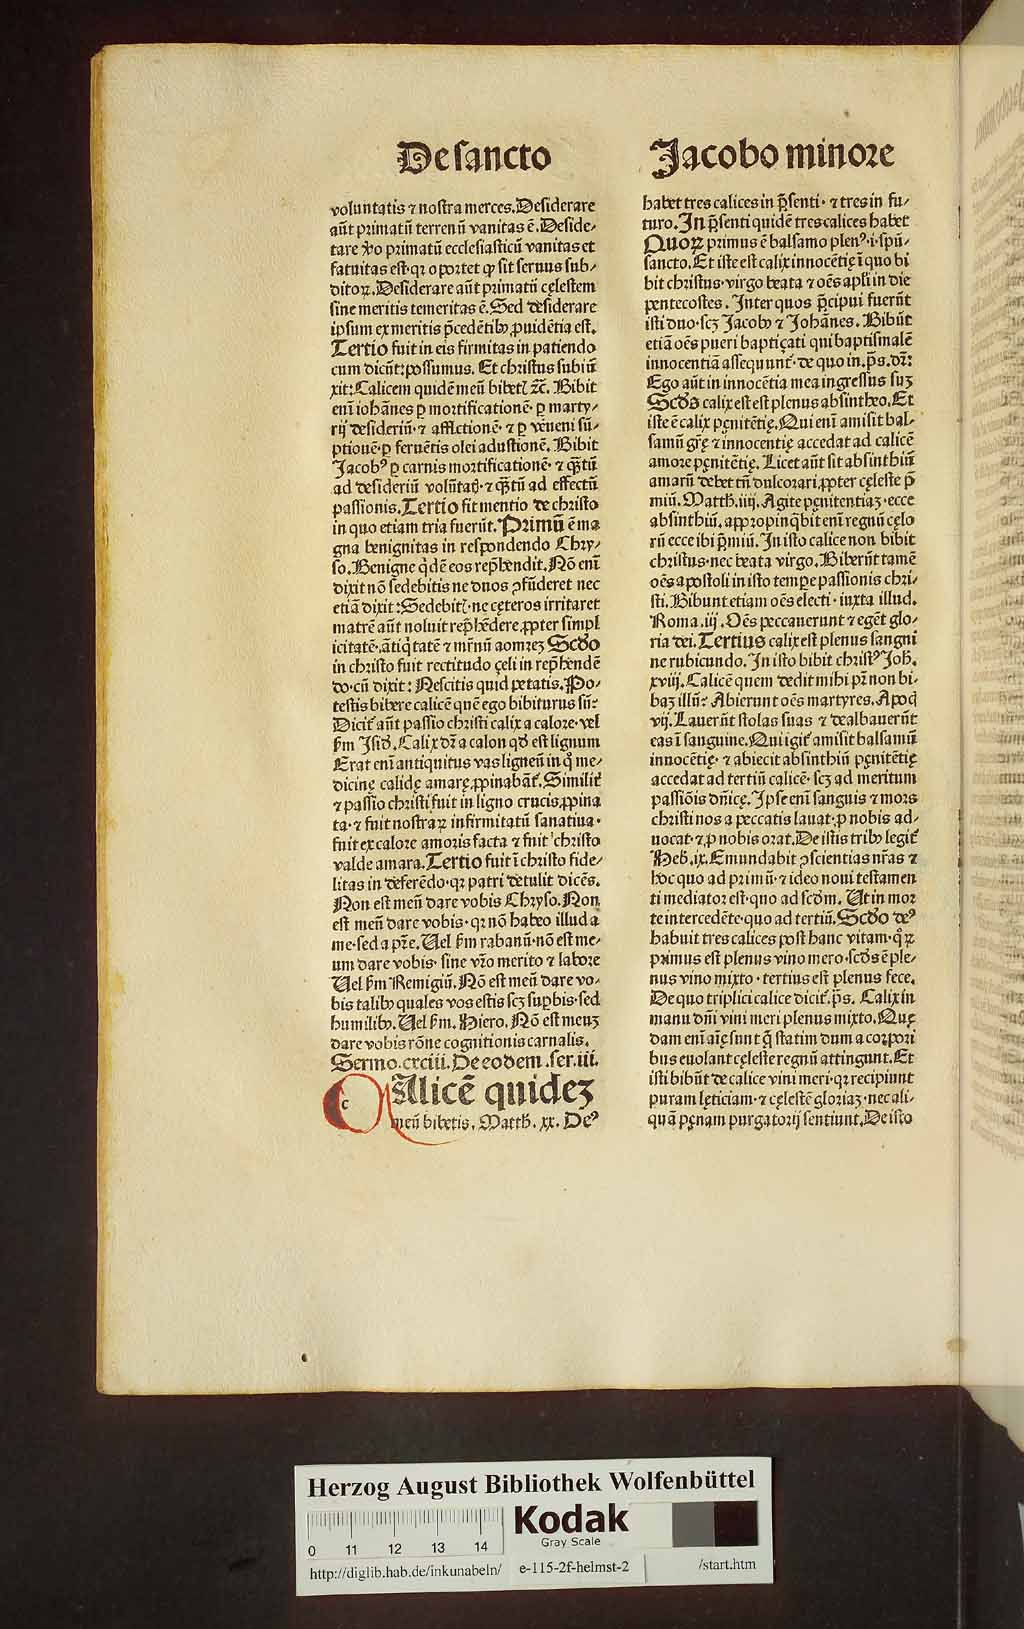 De sancto
voluntatis ⁊ nostra merces. Desiderare
aūt primatū terrenū vanitas ē. Deside-
rare ꝟo primatū ecclesiasticū vanitas et
fatuitas est· qꝛ oportet ꝙ sit seruus sub-
ditoꝝ. Desiderare aūt primatū cęlestem
sine meritis temeritas ē. Sed desiderare
ipsum ex meritis p̄cedētibꝰ ꝓuidētia est.
Tertio fuit in eis firmitas in patiendo
cum dicūt: possumus. Et christus subiū
xit: Calicem quidē meū bibetꝭ ⁊c̄. Bibit
enī iohānes ꝑ mortificationē· ꝑ marty-
rij desideriū· ⁊ afflctionē· ⁊ ꝑ veneni sū-
ptionē· ꝑ feruētis olei adustionē. Bibit
Jacobꝰ ꝑ carnis mortificationē· ⁊ qͣꝫtū
ad desideriū volūtatꝭ· ⁊ qͣꝫtū ad effectū
passionis. Tertio fit mentio de christo
in quo etiam tria fuerūt. Primū ē ma
gna benignitas in respondendo Chry-
so. Benigne qͥdē eos rep̄hendit. Nō enī
dixit nō sedebitis ne duos ꝯfūderet nec
etiā dixit: Sedebitꝭ· ne cęteros irritaret
matrē aūt noluit rep̄hēdere, ꝓpter simpl
icitatē· ātiqͥtatē ⁊ mr̄nū aomreꝫ Scdo
in christo fuit rectitudo ꝫeli in rep̄hendē
do· cū dixit: Nescitis quid petatis. Po-
testis bibere calicē quē ego bibiturus sū:
Dicit̄ aūt passio christi calix a calore· vel
ẜm Isid. Calix dr̄ a calon qd̄ est lignum
Erat enī antiquitus vas ligneū in q̄ me-
dicinę calidę amarę, ꝓpinabāt̄. Similit̄
⁊ passio christi fuit in ligno crucis, ꝓpina
ta· ⁊ fuit nostraꝝ infirmitatū sanatiua·
fuit ex calore amoris facta ⁊ fuit christo
valde amara. Tertio fuit ī christo fide-
litas in deferēdo· qꝛ patri detulit dicēs.
Non est meū dare vobis Chryso. Non
est meū dare vobis· qꝛ nō habeo illud a
me· sed a pr̄e. Uel ẜm rabanū· nō est me-
um dare vobis· sine vr̄o merito ⁊ labore
Uel ẜm Remigiū. Nō est meū dare vo-
bis talibꝰ quales vos estis scꝫ suꝑbis· sed
humilibꝰ. Uel ẜm. Hiero. Nō est meuꝫ
dare vobis rōne cognitionis carnalis.
Sermo. cxciii. De eodem .ser. iii.
c
Alicē quideꝫ
meū bibetis. Matth. xx. Deꝰ
Jacobo minore
habet tres calices in p̄senti· ⁊ tres in fu-
turo. In p̄senti quidē tres calices habet
Quoꝝ primus ē balsamo plenꝰ· i· spū-
sancto. Et iste est calix innocētię ī quo bi
bit christus· virgo beata ⁊ oēs apl̄i in die
pentecostes. Inter quos p̄cipui fuerūt
isti duo· scꝫ Jacobꝰ ⁊ Johānes. Bibūt
etiā oēs pueri baptiꝫati qui baptismalē
innocentiā assequunt̄· de quo in. p̄s. dr̄:
Ego aūt in innocētia mea ingressus suꝫ
Scds calix est est plenus absintheo. Et
iste ē calix pęnitētię. Qui enī amisit bal-
samū gr̄ę ⁊ innocentię accedat ad calicē
amore pęnitētię. Licet aūt sit absinthiū
amarū debet tn̄ dulcorari, ꝓpter cęleste p̄
miū. Matth. iiij. Agite pęnitentiaꝫ· ecce
absinthiū. appropinqͣbit enī regnū cęlo
rū ecce ibi p̄miū. In isto calice non bibit
christus· nec beata virgo. Biberūt tamē
oēs apostoli in isto tempe passionis chri-
sti. Bibunt etiam oēs electi· iuxta illud.
Roma. iij. Oēs peccauerunt ⁊ egēt glo-
ria dei. Tertius calix est plenus sangni
ne rubicundo. In isto bibit christꝰ Joh.
xviij. Calicē quem dedit mihi pr̄ non bi-
baꝫ illū: Abierunt oēs martyres. Apoc̄
vij. Lauerūt stolas suas ⁊ dealbauerūt
eas ī sanguine. Qui igit̄ amisit balsamū
innocētię· ⁊ abiecit absinthiū pęnitētię
accedat ad tertiū calicē· scꝫ ad meritum
passiōis dn̄icę. Ipse enī sanguis ⁊ mors
christi nos a peccatis lauat: ꝓ nobis ad-
uocat· ⁊ ꝓ nobis orat. De istis tribꝰ legit̄
Heb. ix. Emundabit ꝯscientias nr̄as ⁊
hoc quo ad primū· ⁊ ideo noni testamen
ti mediator est· quo ad scdm. Ut in mor
te intercedēte· quo ad tertiū. Scdo deꝰ
habuit tres calices post hanc vitam· qͦꝝ
primus est plenus vino mero· scds ē ple-
nus vino mixto· tertius est plenus fece.
De quo triplici calice dicit̄. p̄s. Calix in
manu dn̄i vini meri plenus mixto. Quę
dam enī aīę sunt q̄ statim dum a corpori
bus euolant cęleste regnū attingunt. Et
isti bibūt de calice vini meri· qꝛ recipiunt
puram lęticiam· ⁊ cęlestē gloriaꝫ· nec ali-
quā pęnam purgatorij sentiunt. De isto
Herzog August Bibliothek Wolfenbüttel
Kodak
Gray Scale
0 11 12 13 14
http://diglib.hab.de/inkunabeln/ e-115-2f-helmst-2 /start.htm